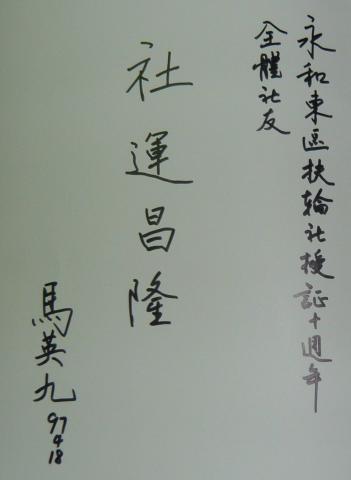 永和東區扶輪社授証十週年
全體社友
社運昌隆
馬英九 97 4 18